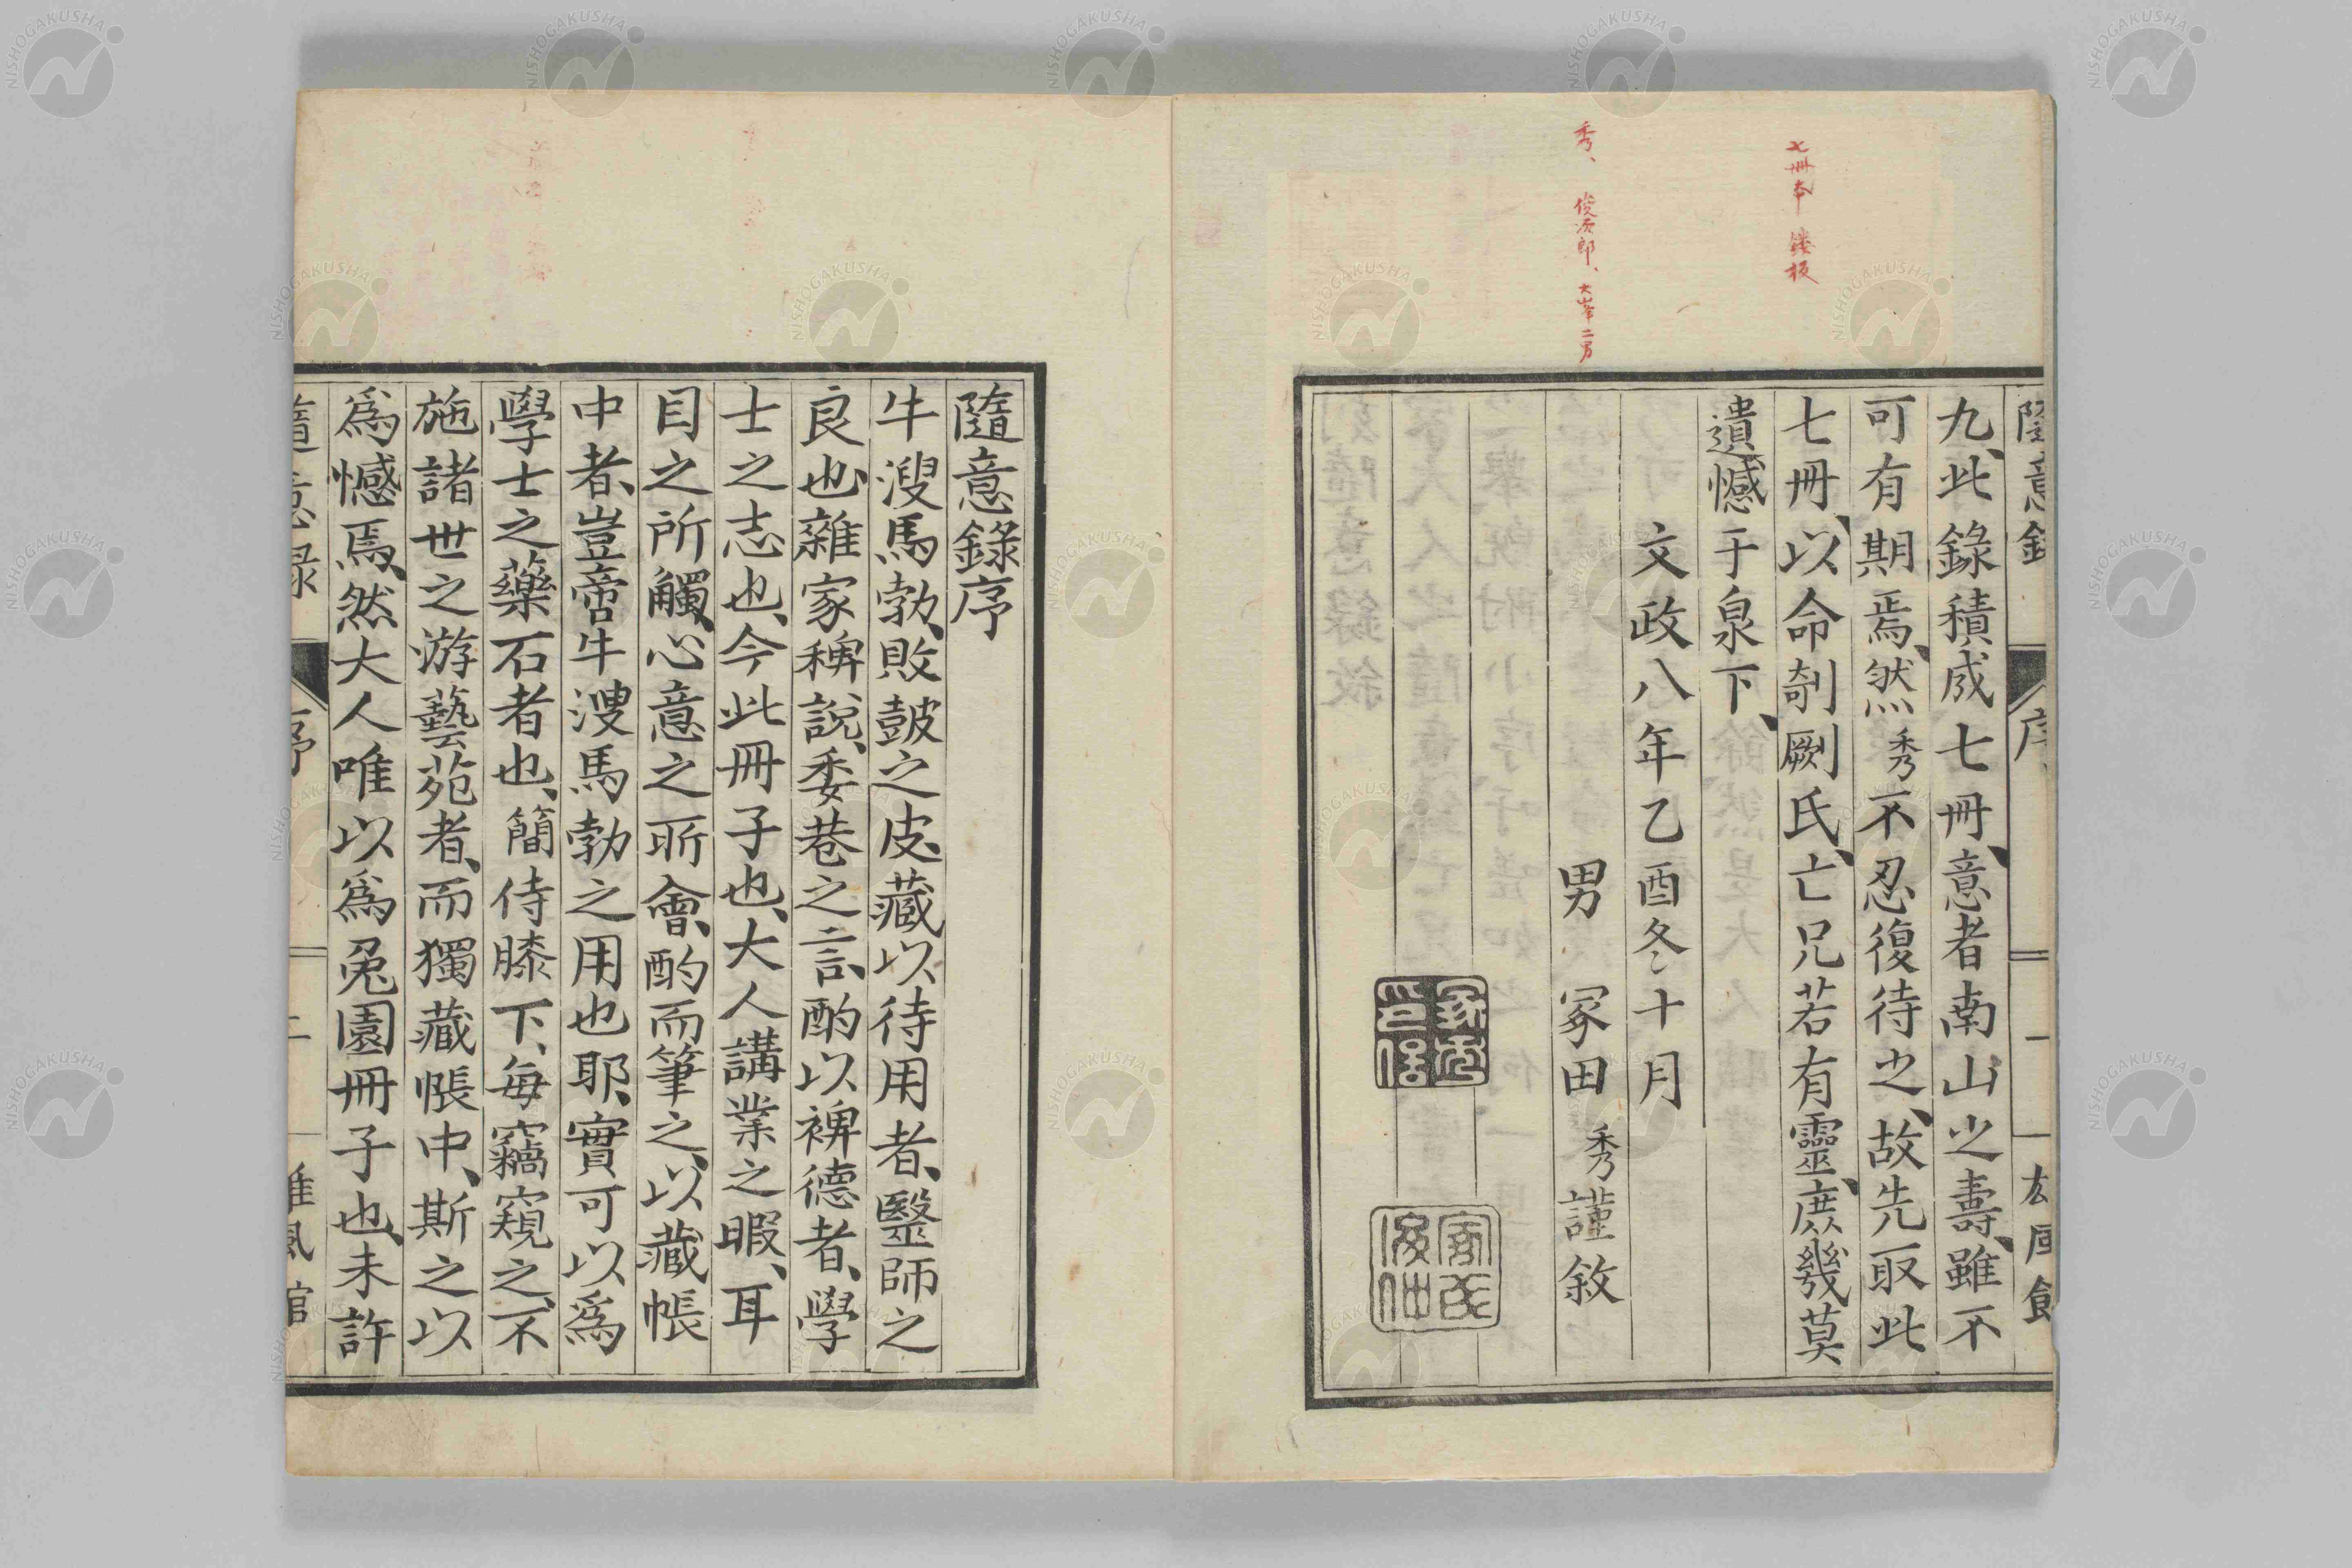 七冊本 鏤板
秀、 俊次郎、大峯二男
隨意錄 序 一 雄風館
九、此錄積成七冊、意者南山之壽、雖不
可有期焉、然秀不忍復待之、故先取此
七冊、以命剞劂氏、亡兄若有靈、庶幾莫
遺憾于泉下、
文政八年乙酉冬十月
男 冢田 秀謹敘
隨意錄序
牛溲馬勃、敗皷之皮、藏以待用者、醫師之
良也、雜家稗說、委巷之言、酌以裨德者、學
士之志也、今此冊子也、大人講業之暇、耳
目之所觸、心意之所會、酌而筆之、以藏帳
中者、豈啻牛溲馬勃之用也耶、實可以爲
學士之藥石者也、簡侍膝下、每竊窺之、不
施諸世之游藝苑者、而獨藏帳中、斯之以
爲憾焉、然大人唯以爲兔園冊子也、未許
隨意錄 序 二 雄風館
NISHOGAKUSHA